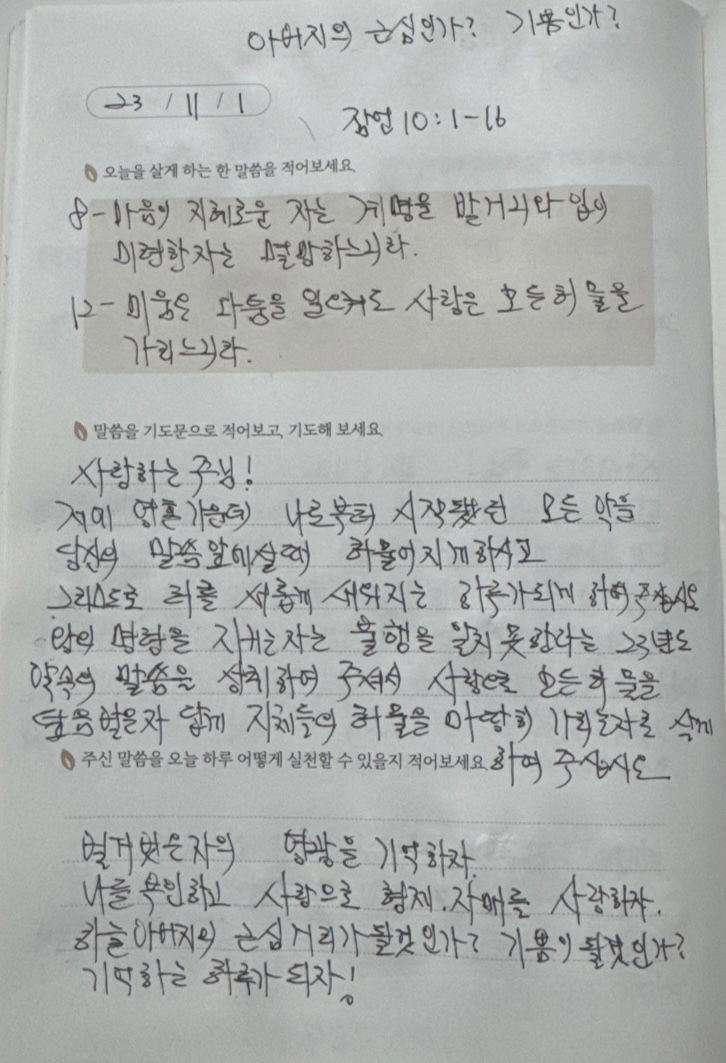 아버지의 근심인가? 기쁨인가?
23 / 11 / 1
잠언 10:1-16
오늘을 살게 하는 한 말씀을 적어보세요.
8-마음이 지혜로운 자는 계명을 받거니와 입이
미련한 자는 멸망하느니라.
12-미움은 다툼을 일으켜도 사랑은 모든 허물을
가리느니라.
말씀을 기도문으로 적어보고, 기도해 보세요.
사랑하는 주님!
저의 영혼 가운데 나로부터 시작됐던 모든 악을
당신의 말씀앞에 설때 허물어지게 하시고
그리스도로 저를 새롭게 세워지는 하루가 되게 하여 주십시오
왕의 명령을 지키는 자는 불행을 알지 못한다는 23년도
약속의 말씀을 성취하여 주셔서 사랑으로 모든 허물을
덮음받은자 답게 지체들의 허물을 마땅히 가리는자로 살게
주신 말씀을 오늘 하루 어떻게 실천할 수 있을지 적어보세요. 하여 주십시오
벌거벗은자의 영광을 기억하자.
나를 부인하고 사랑으로 형제.자매를 사랑하자.
하늘아버지의 근심거리가 될것인가? 기쁨이 될것인가?
기억하는 하루가 되자!